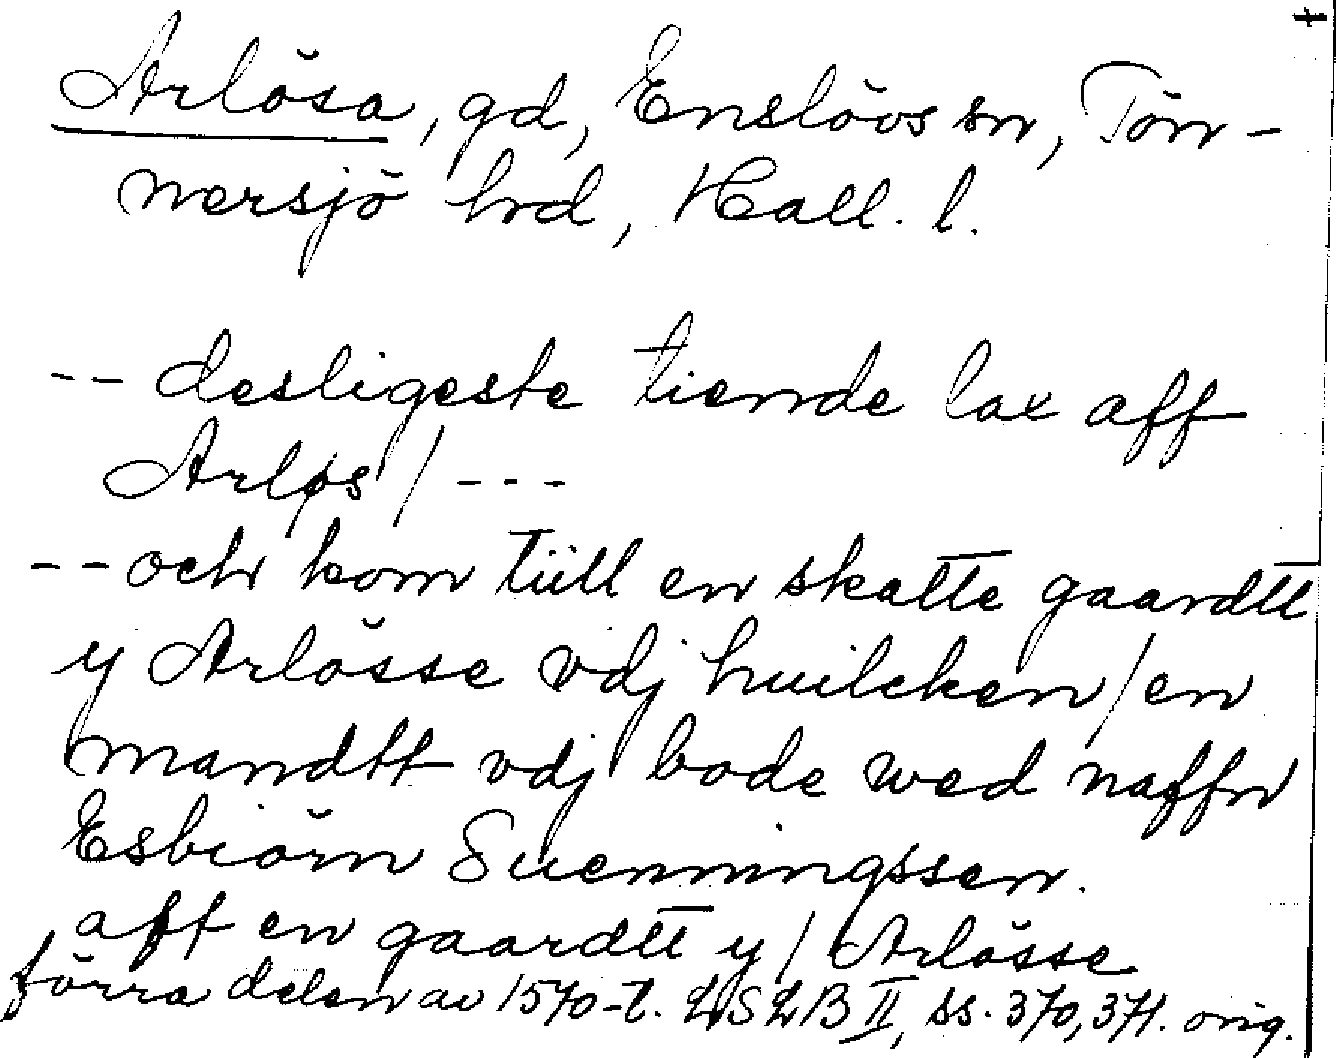 Arlösa, gd, Enslövs sn, Tön-
nersjö hd, Hall. l.
-- desligeste tiende lax aff
Arløs / ---
-- och kom tiill en skatte gaardtt
y Arlösse vdj huilcken / en
mandtt vdj bode wed naffn
Esbiörn Suenningssen.
aff en gaardtt y / Arlösse
förra delen av 1570-t. LSLB II, ss. 370, 371. orig.